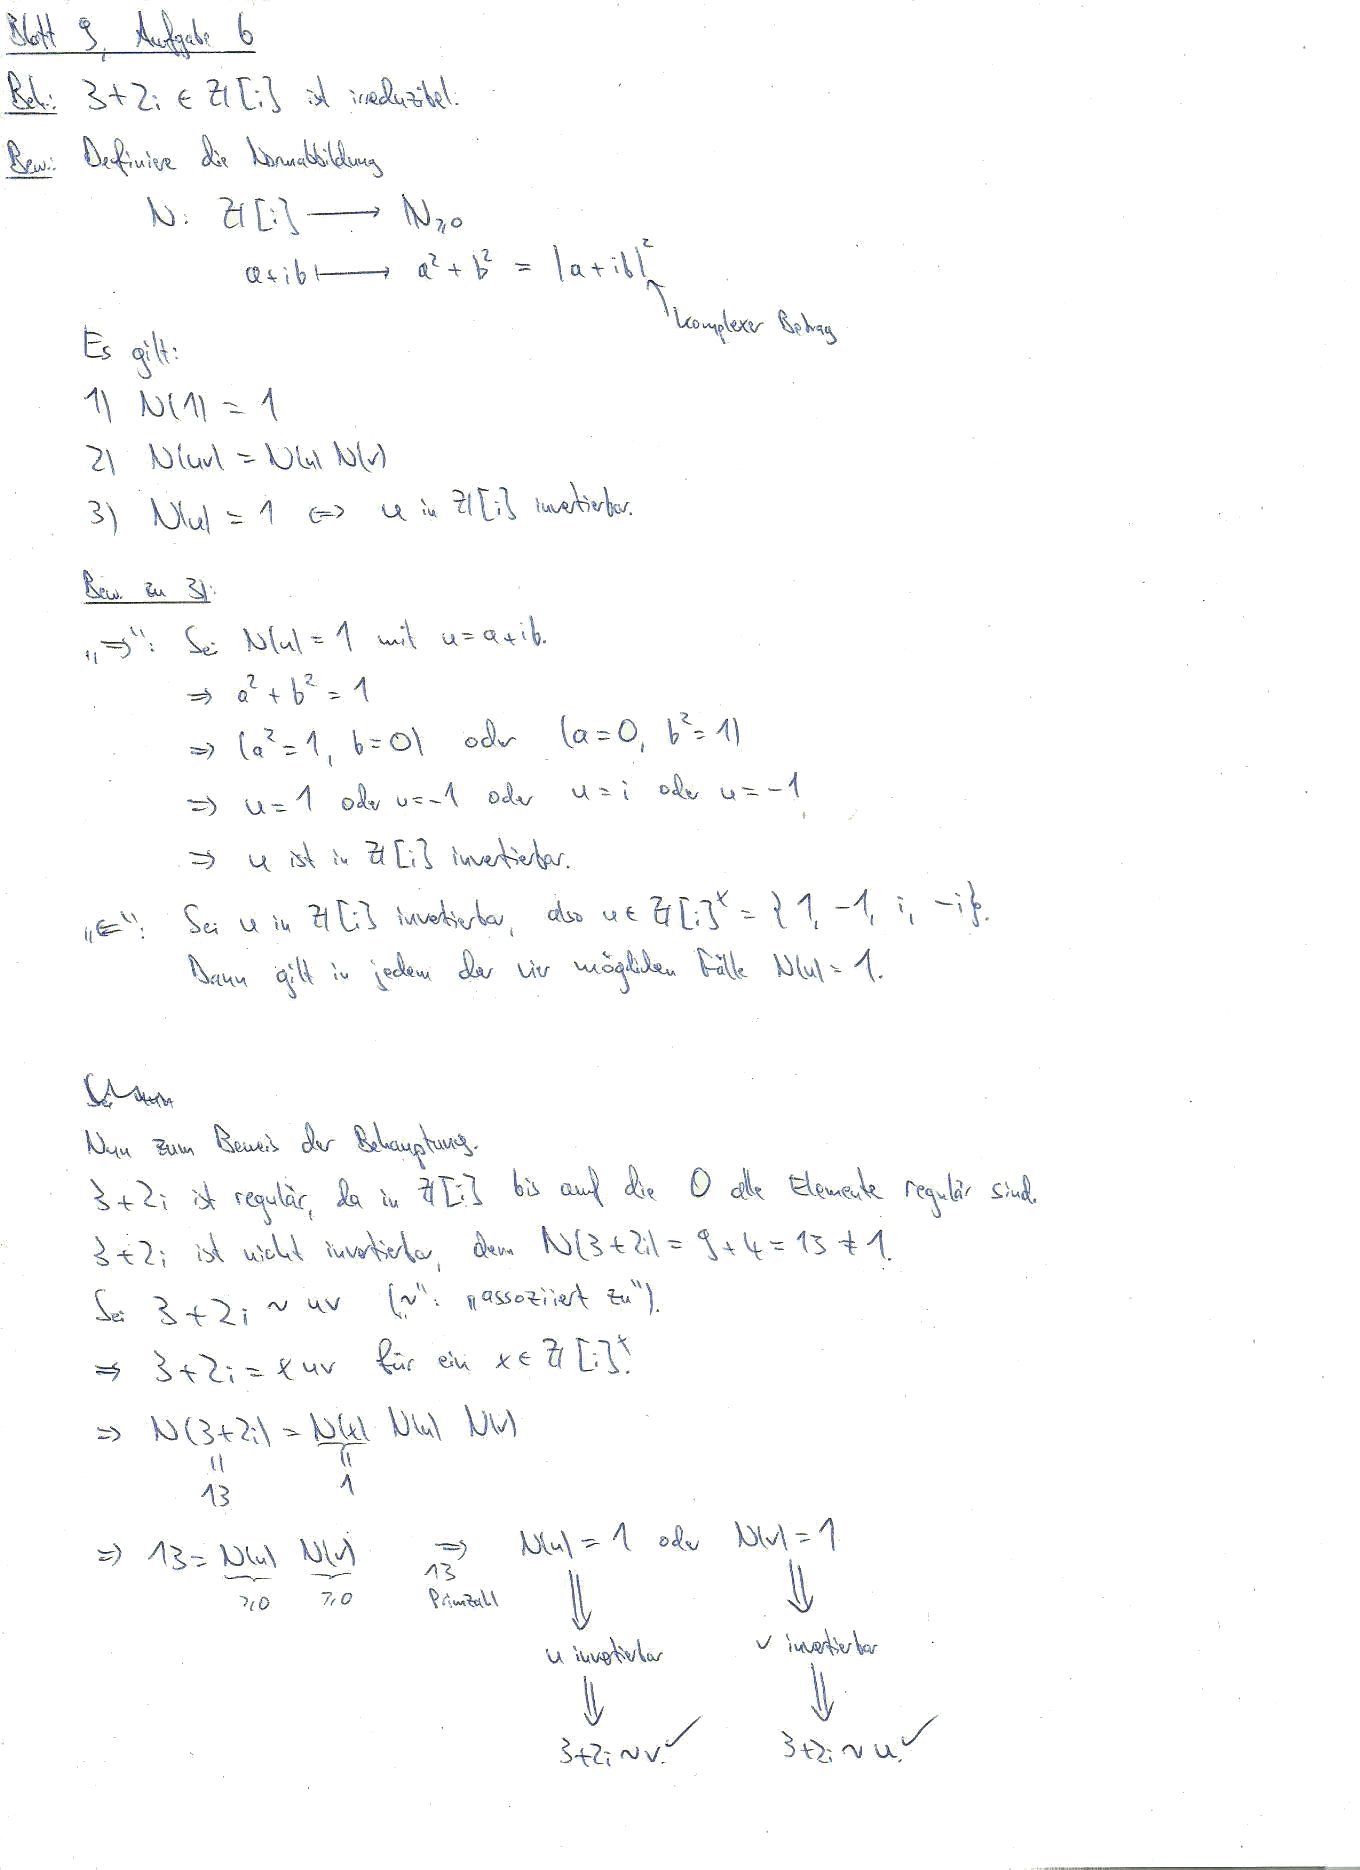 Blatt 9, Aufgabe 6
Beh.: 3+2i ∈ ℤ[i] ist irreduzibel.
Bew.: Definiere die Normabbildung
N: ℤ[i] ⟶ ℕ≥0
a+ib ⟼ a² + b² = |a+ib|²
komplexer Betrag
Es gilt:
1) N(1) = 1
2) N(uv) = N(u) N(v)
3) N(u) = 1 ⇔ u in ℤ[i] invertierbar.
Bew. zu 3):
„⇒“: Sei N(u) = 1 mit u = a+ib.
⇒ a² + b² = 1
⇒ (a² = 1, b = 0) oder (a = 0, b² = 1)
⇒ u = 1 oder u = -1 oder u = i oder u = -1
⇒ u ist in ℤ[i] invertierbar.
„⇐“: Sei u in ℤ[i] invertierbar, also u ∈ ℤ[i]ˣ = {1, -1, i, -i}.
Dann gilt in jedem der vier möglichen Fälle N(u) = 1.
Nun zum Beweis der Behauptung.
3+2i ist regulär, da in ℤ[i] bis auf die 0 alle Elemente regulär sind.
3+2i ist nicht invertierbar, denn N(3+2i) = 9+4 = 13 ≠ 1.
Sei 3+2i ~ uv („~“: „assoziiert zu“).
⇒ 3+2i = xuv für ein x ∈ ℤ[i]ˣ.
⇒ N(3+2i) = N(x) N(u) N(v)
= =
13 1
⇒ 13 = N(u) N(v) ⇒ N(u) = 1 oder N(v) = 1
≥0 ≥0 13 Primzahl
⇓ ⇓
u invertierbar v invertierbar
⇓ ⇓
3+2i ~ v. ✓ 3+2i ~ u. ✓